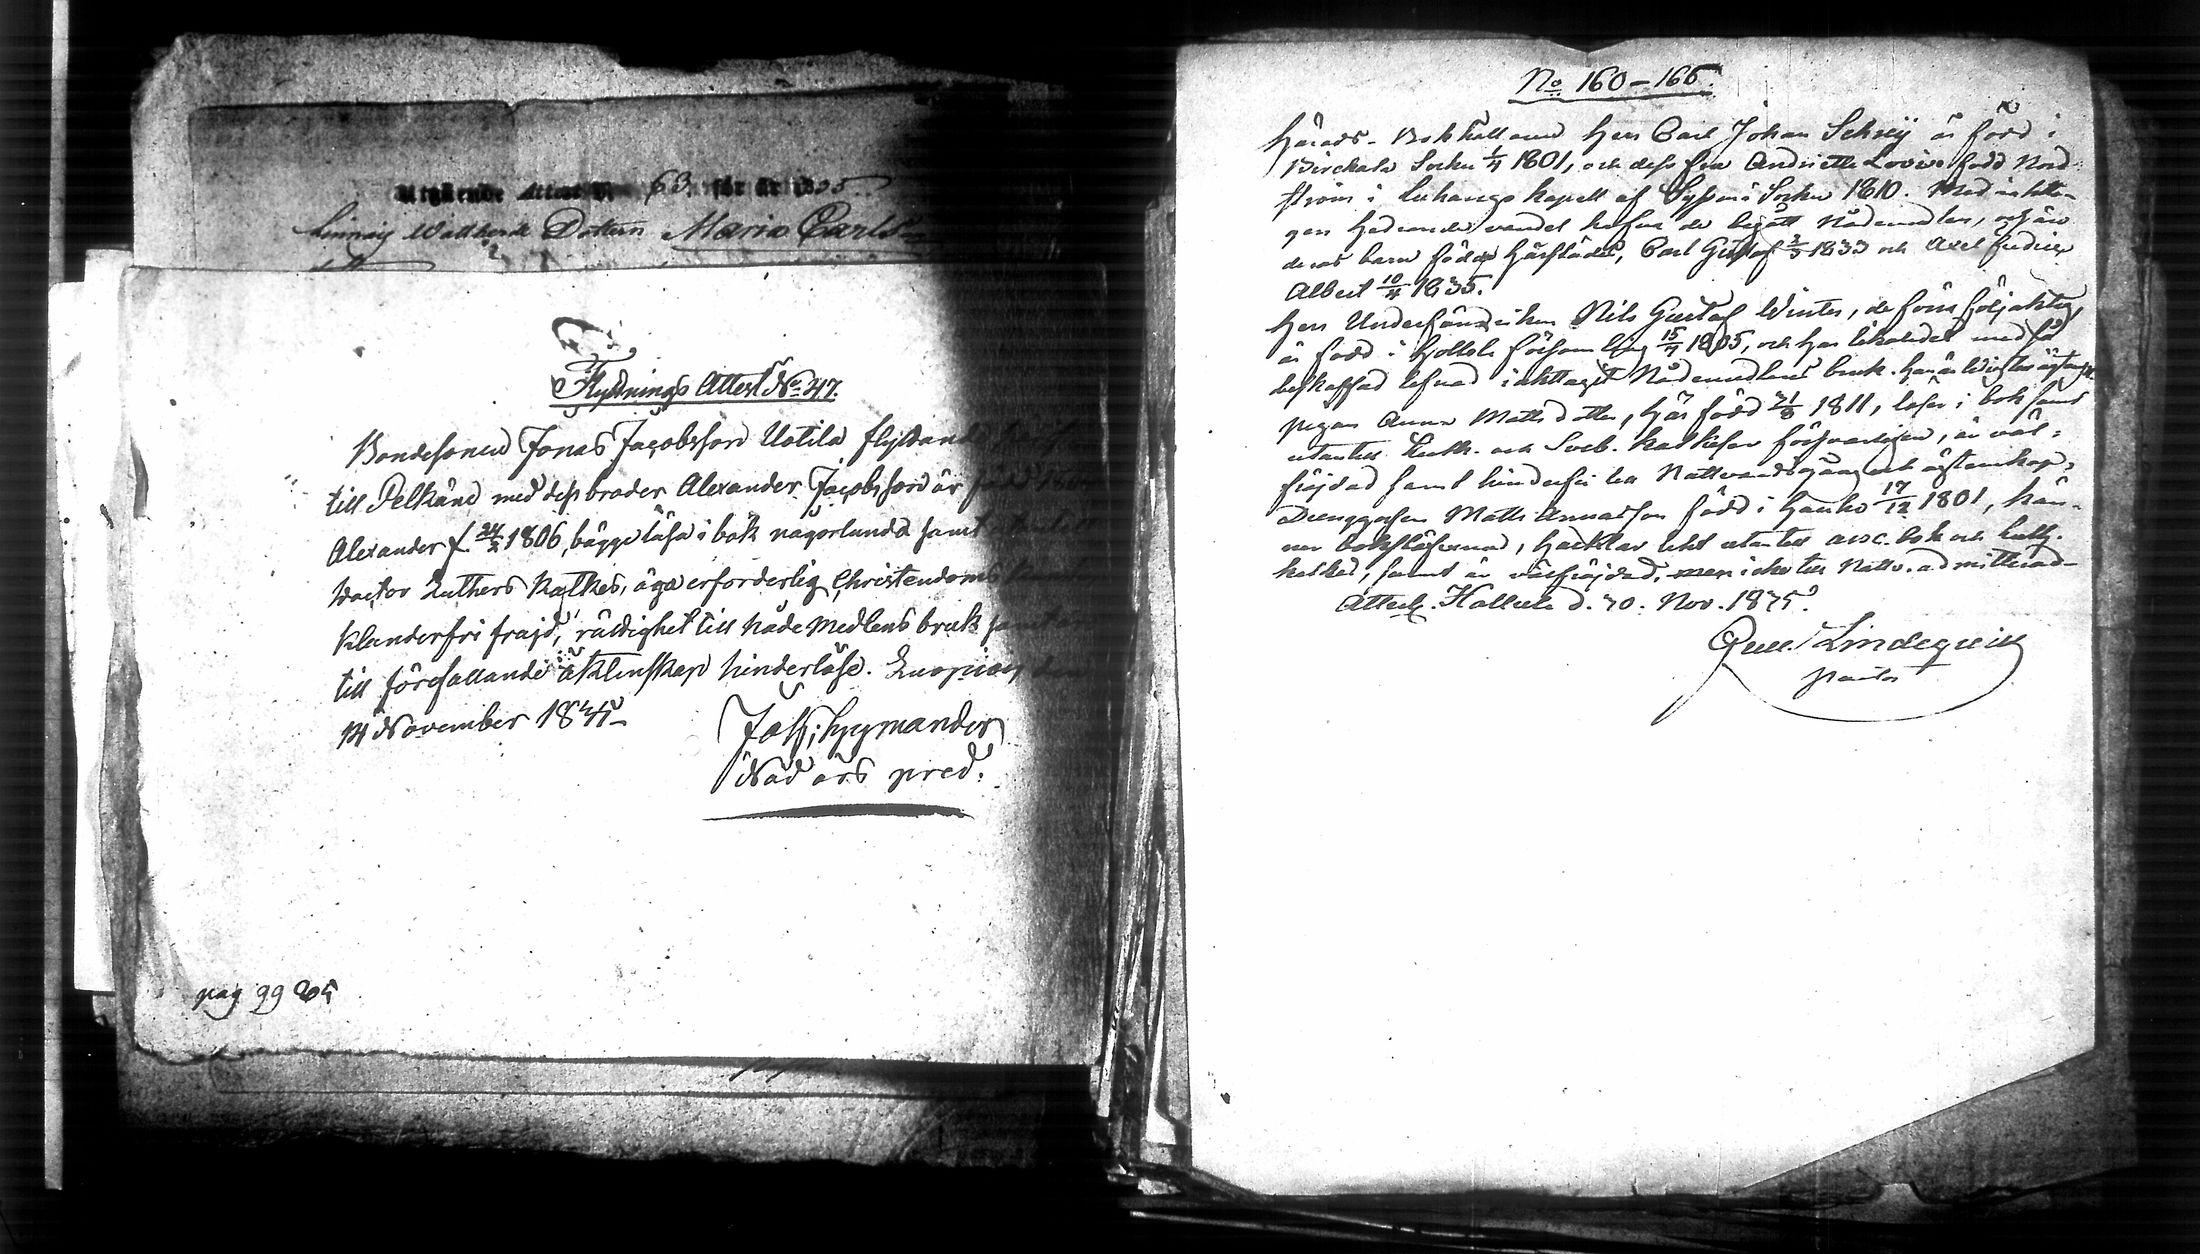 Utgående Attest N 63. för år 1835.
Dottern Maria Carls
Flyttnings Attest No. 47.
Bondesonen Jonas Jacobsson Uotila flyttande
till Pelkäne med dess broder Alexander Jacobsson är född
Alexander f. 24/2 1806, bägge läsa i bok någorlunda samt
Doctor Luthers Katkes, äga erforderlig Christendoms
klanderfri frajd, rättighet till nåde medlens bruk samt
till förefallande äktenskap hinderlöse. Kuopio
14 November 1835
Joh: Hymander
Nåd års pred.
pag 99
No 160-166.
Härads-Bokhållaren Herr Carl Johan Schrey är född i
Birckala Socken 1/4 1801, och dess fru Andriette Lovisa född Nord
ström i Luhango kapell af Sysmä Socken 1810. Med
gen hedrande vandel hafva de begått Nådemedlen, och äro
deras barn födde härstädes, Carl Gustaf 3/5 1833 och Axel Fredric
Albert 10/4 1835.
Herr Underfändriken Nils Gustaf Winter, de förres
är född i Hollola församling 15/7 1805, och har likaledes med så
beskaffad lefnad iakttagit Nådemedlens bruk.
pigan Anna Mattsdotter, här född 21/8 1811, läser i bok samt
utantill Luth. och Sveb. katkeser försvarligen, är väl-
frejdad samt hinderfri till Nattvardsgång och äktenskap.
Drenggossen Matts Annasson född i Hauho 17/12 1801, kän-
ner bokstäfverna, hacklar litet utantill abc-bok och Luth.
katkes, samt är välfrejdad, men icke till Nattv. admitterad.
Attest. Kallvola d. 30. Nov. 1835.
Lindeqvist
pastor